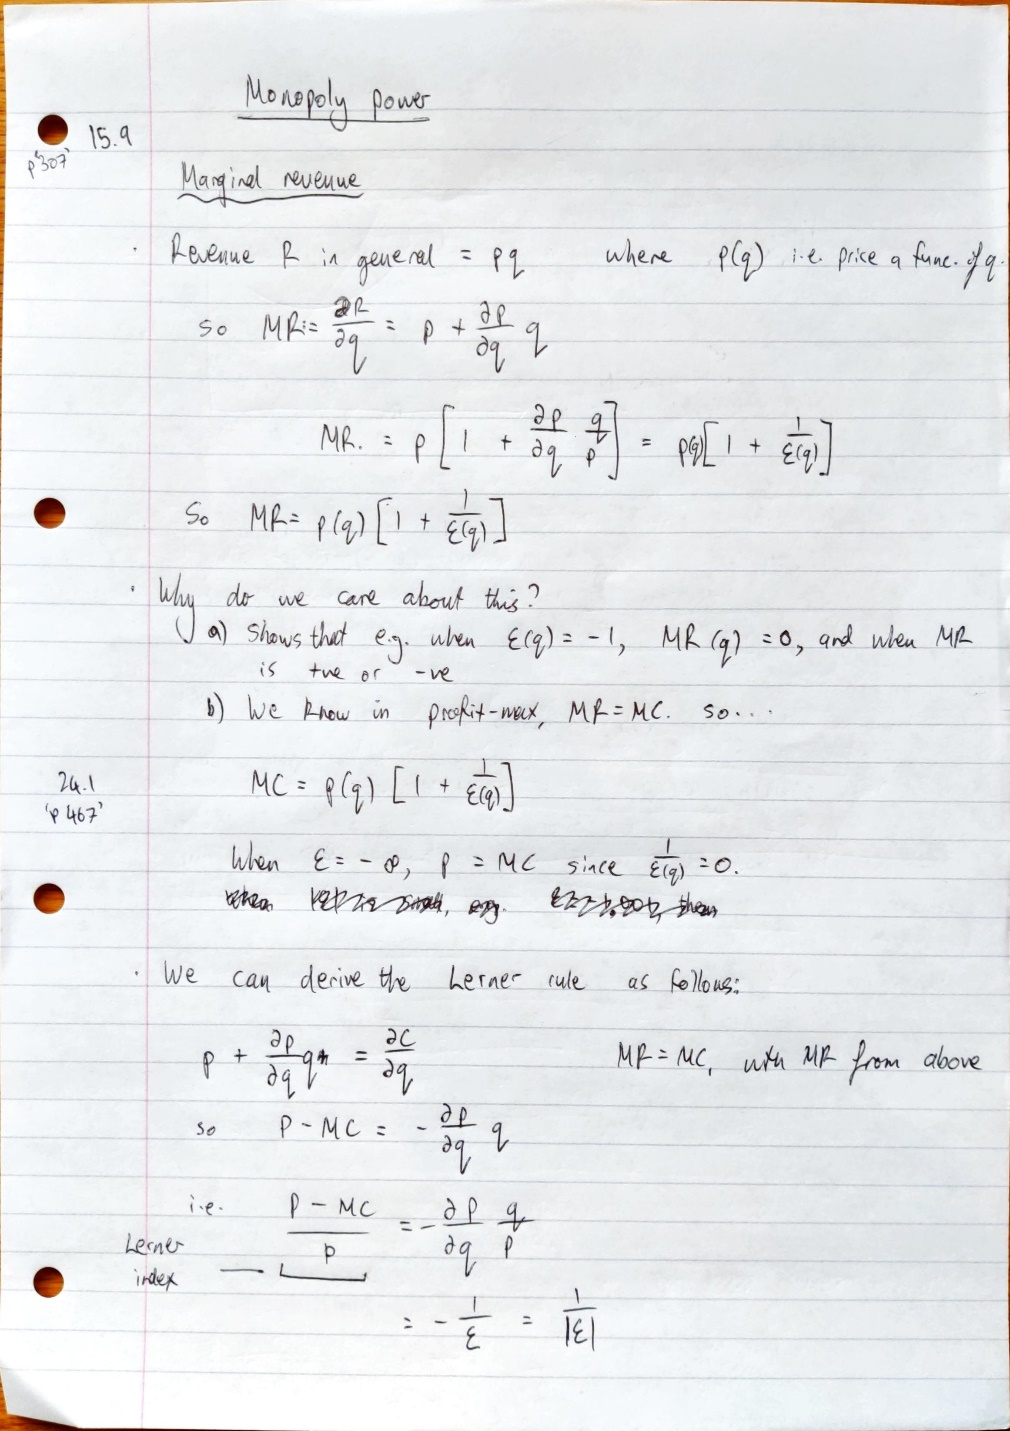 Monopoly power
15.9
p'307'
Marginal revenue
· Revenue R in general = pq where p(q) i.e. price a func. of q.
so MR := ∂R/∂q = p + ∂p/∂q q
MR. = p [1 + ∂p/∂q q/p] = p(q)[1 + 1/ε(q)]
So MR = p(q) [1 + 1/ε(q)]
· Why do we care about this?
a) Shows that e.g. when ε(q) = -1, MR(q) = 0, and when MR
is +ve or -ve
b) We know in profit-max, MR = MC. so...
24.1
'p 467'
MC = p(q) [1 + 1/ε(q)]
When ε = -∞, p = MC since 1/ε(q) = 0.
· We can derive the Lerner rule as follows:
p + ∂p/∂q q = ∂C/∂q MR = MC, with MR from above
so P - MC = - ∂p/∂q q
i.e. (P - MC)/p = - ∂p/∂q q/p
Lerner
index
= - 1/ε = 1/|ε|